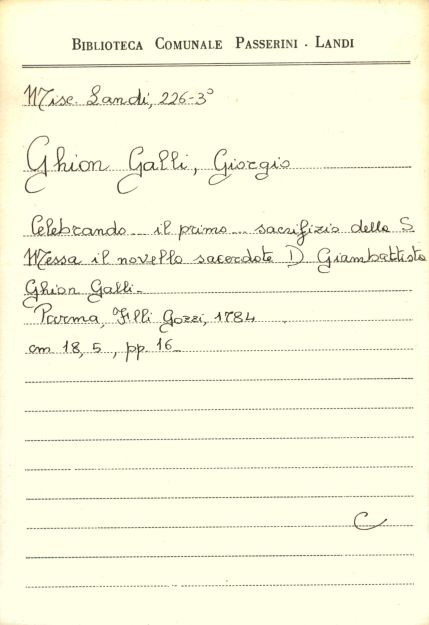 BIBLIOTECA COMUNALE PASSERINI - LANDI
Misc. Landi, 226-3°
Ghion Galli, Giorgio
Celebrando ... il primo ... sacrifizio della S.
Messa il novello sacerdote D. Giambattista
Ghion Galli.
Parma, F.lli Gozzi, 1784
cm 18,5, pp. 16
C